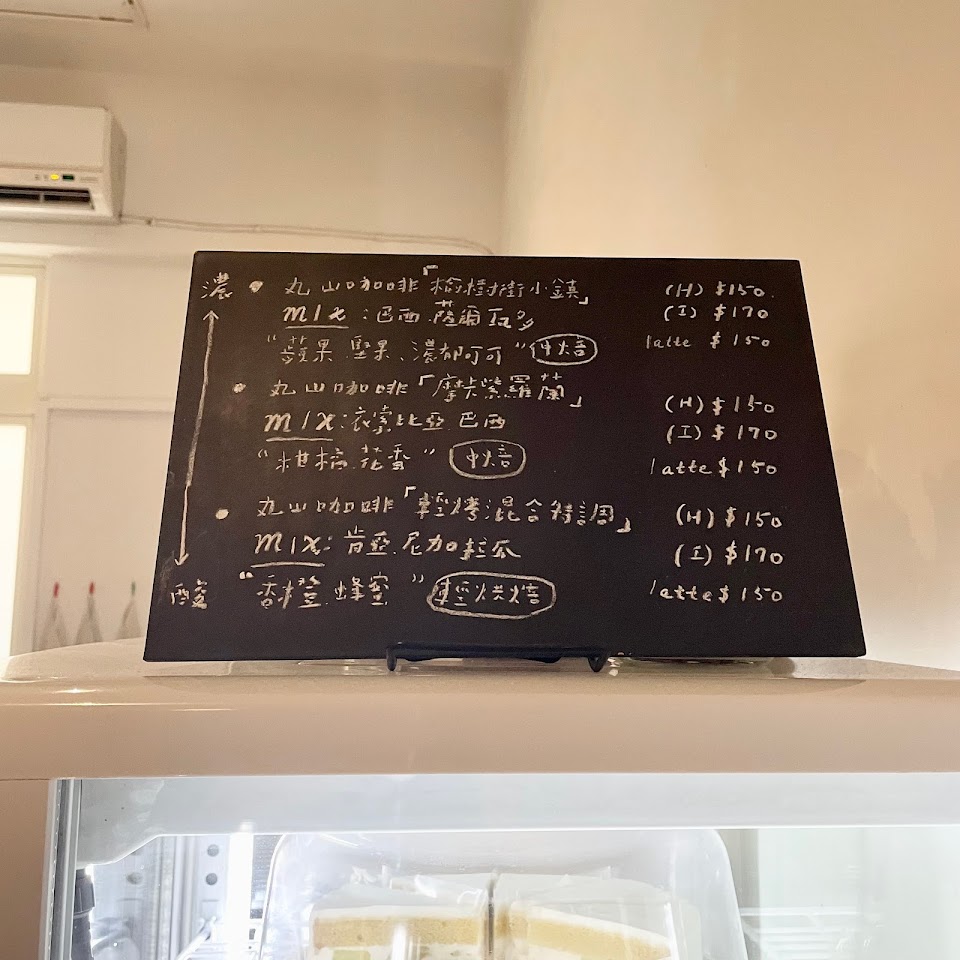 濃 • 丸山咖啡「榆樹街小鎮」 (H) $150
mix:巴西.薩爾瓦多 (I) $170
"蘋果.堅果、濃郁可可" 中焙 latte $150
• 丸山咖啡「摩卡紫羅蘭」 (H) $150
mix:衣索比亞.巴西 (I) $170
"柑橘.花香" 中焙 latte $150
• 丸山咖啡「輕烤混合特調」 (H) $150
mix:肯亞.尼加拉瓜 (I) $170
酸 "香橙.蜂蜜" 輕烘焙 latte $150